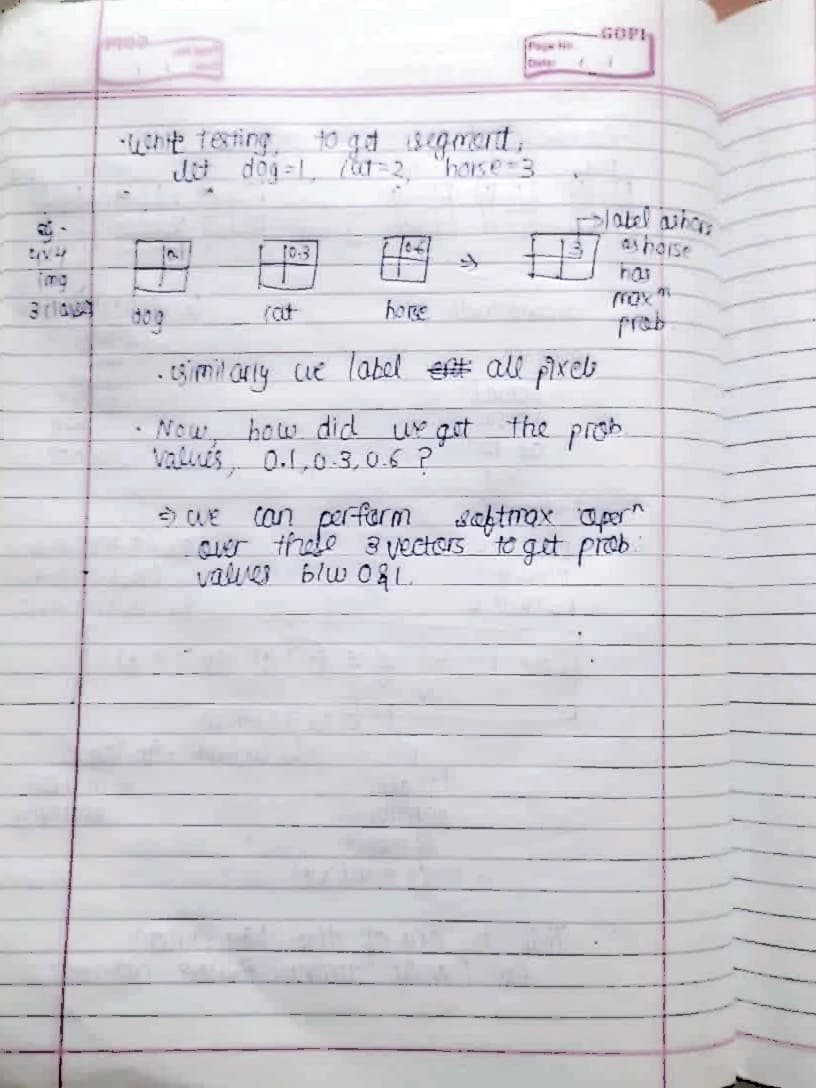 GOPI
Page No.
Date: / /
· While testing, to get segment,
let dog=1, cat=2, horse=3
eg -
4x4
img
3 classes
0.1
0.3
0.6
⇒
3
→ label as hors
as horse
has
max m
prob
dog
cat
horse
· similarly we label all pixels
· Now, how did we get the prob
values, 0.1, 0.3, 0.6 ?
⇒ we can perform softmax oper n
over these 3 vectors to get prob
values b/w 0 & 1.